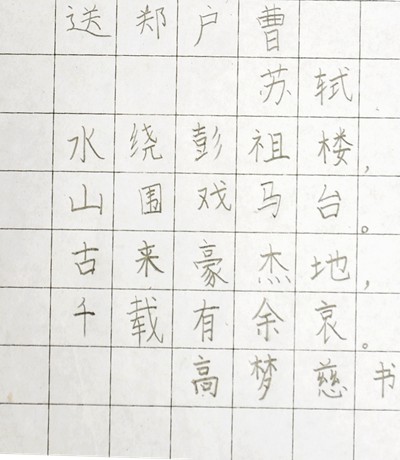 送郑户曹
苏轼
水绕彭祖楼，
山围戏马台。
古来豪杰地，
千载有余哀。
高梦慈书